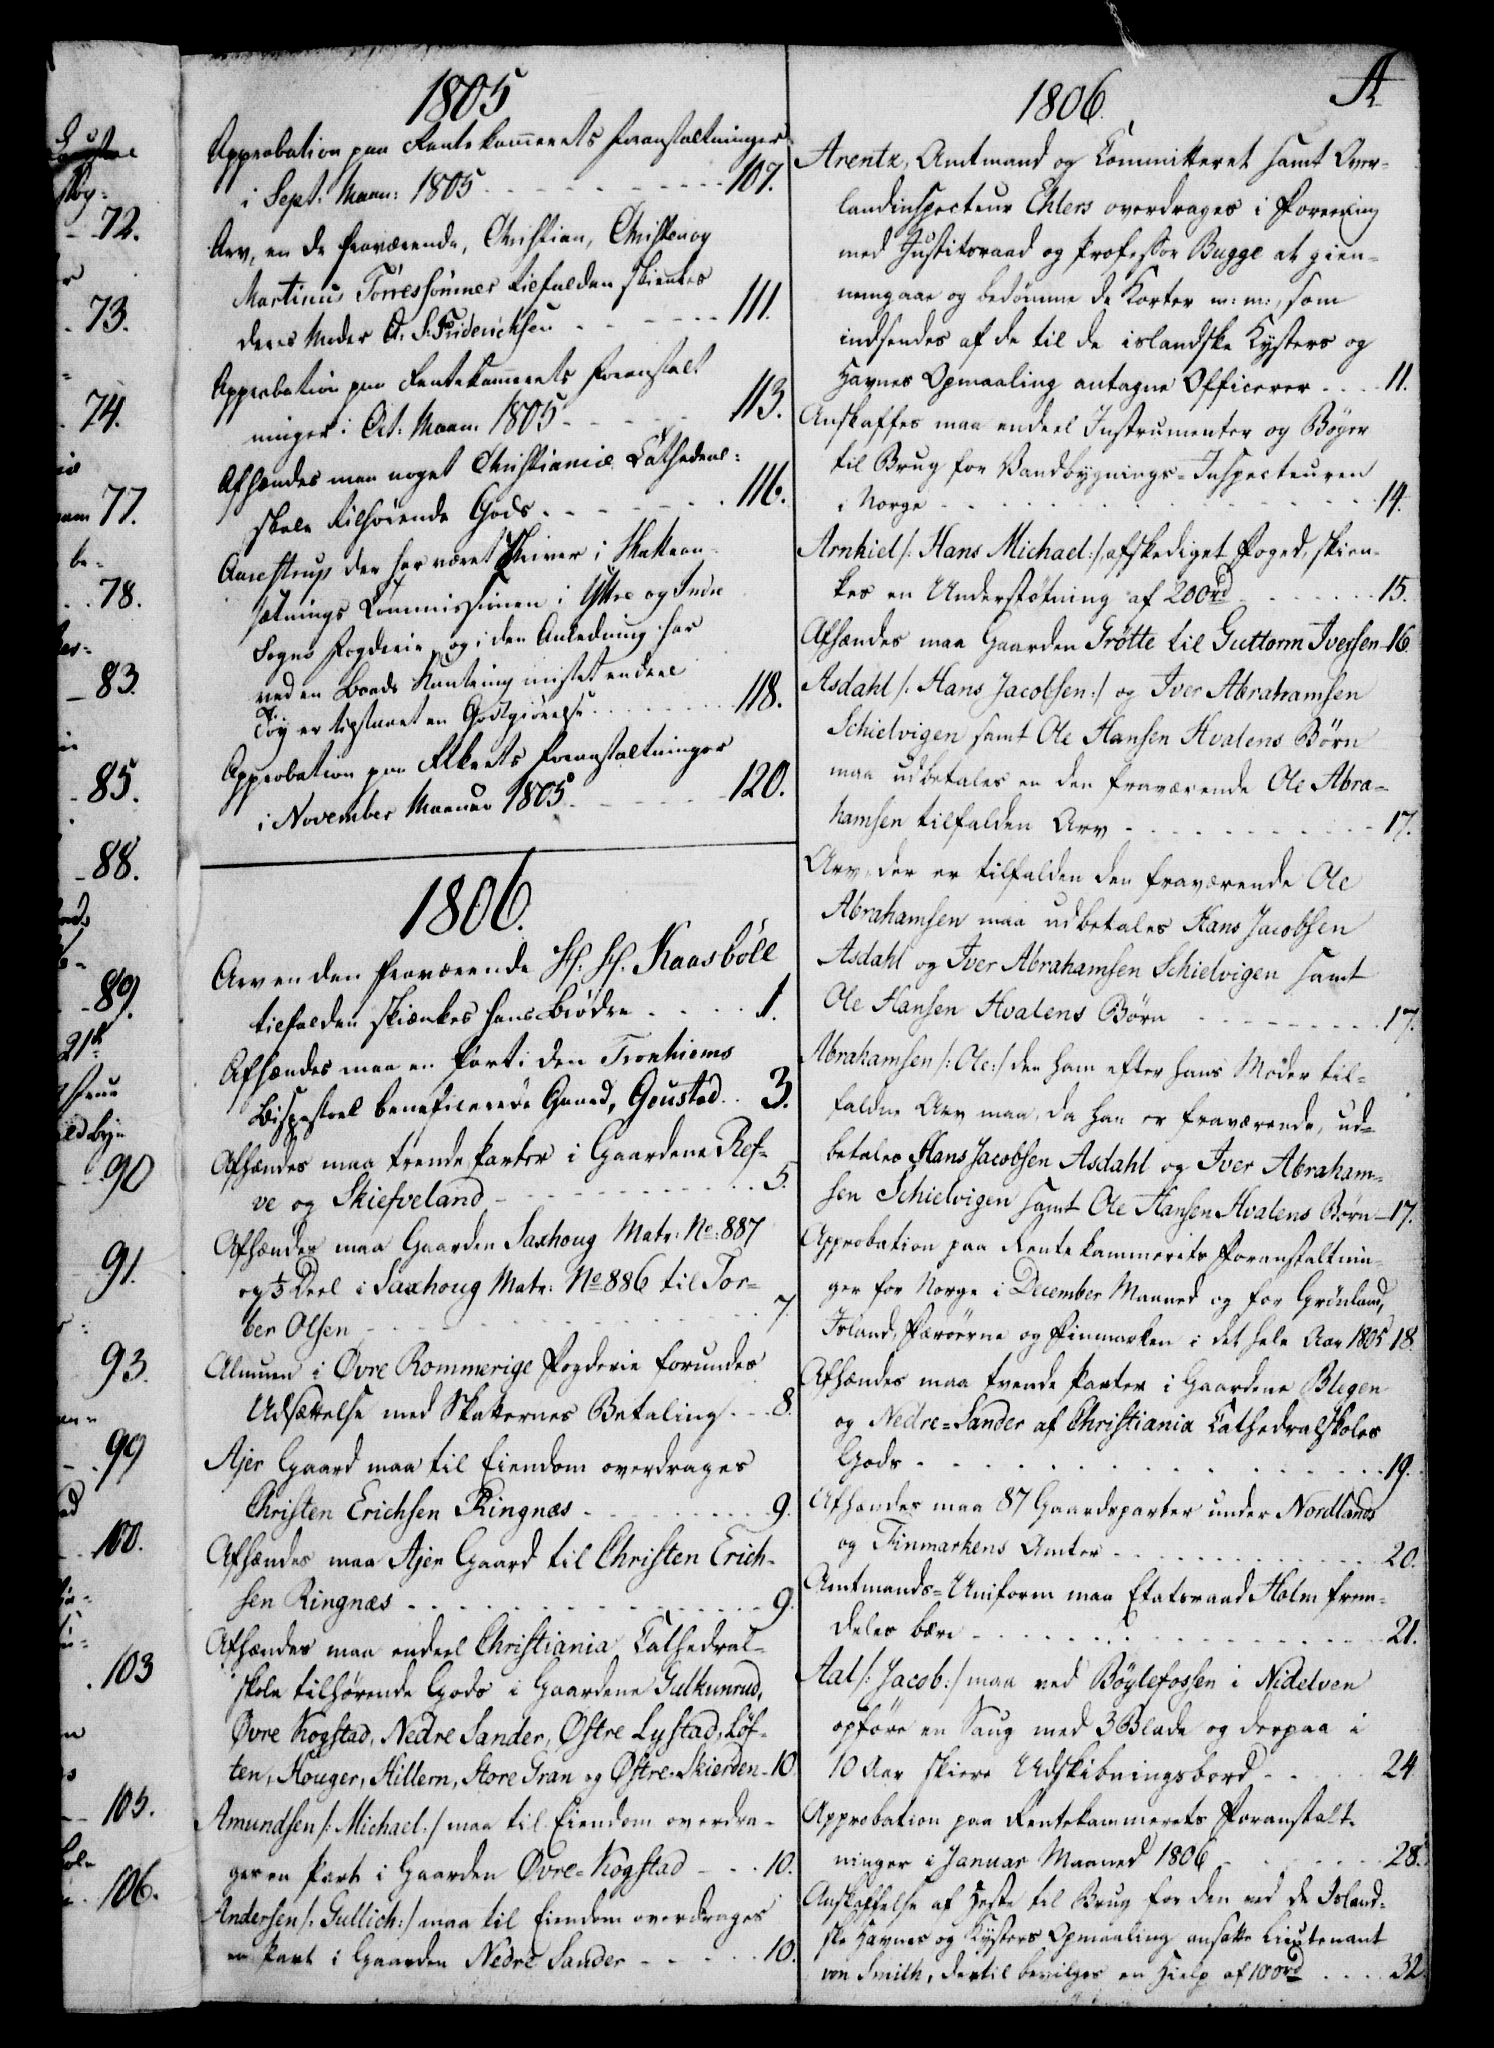 72.
73.
74.
77.
be-
78.
83.
85.
88.
89.
90
91.
93.
99
100.
103
105.
106.
1805
Approbation paa Rentekammerets Foranstaltninger
i Sept: Maan: 1805 - - - 107.
Arv, en de fraværende, Christian, Christen og
Martinus Törressönner tilfalden skienkes
deres Moder A. S. Friderichsen - - - 111.
Approbation paa Rentekammerets Foranstalt
ninger i Oct: Maan: 1805 - - - 113.
Afhændes maa noget Christianiæ Cathedral-
skole tilhörende Gods - - - 116.
der har været Skriver i Matrou-
sætnings Commissionen i Yttre og Indre
Sogns Fogderie, og i den Anledning har
ved en Baads Kantring mistet endeel
Töy er tilstaaet en Godtgiörelse - - - 118.
Approbation paa Rkrets Foranstaltninger
i November Maaned 1805 - - - 120.
1806.
Arv en den fraværende H. H. Kaasböll
tilfalden skiænkes hans Brödre - - - 1.
Afhændes maa en Part i den Tronhiems
Bispestoel beneficerede Gaard, Goustad - - 3.
Afhændes maa trende Parter i Gaardene Ref-
ve og Skiefveland - - - 5.
Afhændes maa Gaarden Saxhoug Matr: No: 887
og ⅓ Deel i Saxhoug Matr: No 886 til Tor-
ber Olsen - - - 7.
Almuen i Øvre Rommerige Fogderie forundes
Udsættelse med Skatternes Betaling - - 8.
Ajer Gaard maa til Eiendom overdrages
Christen Erichsen Ringnæs - - - 9.
Afhændes maa Ajer Gaard til Christen Erich-
sen Ringnæs - - - 9.
Afhændes maa endeel Christiania Cathedral-
skole tilhörende Gods i Gaardene Gulkunrud,
Øvre Kogstad, Nedre Sander, Østre Lystad, Löf-
ten, Houger, Hillern, Store Gran og Østre-Skierden - 10.
Amundsen /: Michael :/ maa til Eiendom overdra-
ges en Part i Gaarden Øvre-Kogstad - - 10.
Andersen /: Gullich :/ maa til Eiendom overdrages
en Part i Gaarden Nedre Sander - - - 10.
A
1806.
Arentz, Amtmand og Committeret samt Over-
landinspecteur Ehlers overdrages i Forening
med Justitsraad og Professor Bugge at gien-
nemgaae og bedömme de Korter m: m:, som
indsendes af de til de islandske Kysters og
Havnes Opmaaling antagne Officerer - - 11.
Anskaffes maa endeel Instrumenter og Böger
til Brug for Vandbygnings-Inspecteuren
i Norge - - - 14.
Arnkiel /: Hans Michael :/, afskediget Foged, skien-
kes en Understötning af 200 rd - - - 15.
Afhændes maa Gaarden Grötte til Guttorm Iversen - 16.
Asdahl /: Hans Jacobsen :/ og Iver Abrahamsen
Schielvigen samt Ole Hansen Hvalens Börn
maa udbetales en den fraværende Ole Abra-
hamsen tilfalden Arv - - - 17.
Arv, der er tilfalden den fraværende Ole
Abrahamsen maa udbetales Hans Jacobsen
Asdahl og Iver Abrahamsen Schielvigen samt
Ole Hansen Hvalens Börn - - - 17.
Abrahamsen /: Ole :/ den ham efter hans Moder til-
faldne Arv maa, da han er fraværende, ud-
betales Hans Jacobsen Asdahl og Iver Abraham-
sen Schielvigen samt Ole Hansen Hvalens Börn - 17.
Approbation paa Rentekammerets Foranstaltnin-
ger for Norge i December Maaned og for Grönland,
Island, Færöerne og Finmarken i det hele Aar 1805 18.
Afhændes maa tvende Parter i Gaardene Blegen
og Nedre-Sander af Christiania Cathedralskoles
Gods - - - 19.
Afhændes maa 87 Gaardsparter under Nordlands
og Finmarkens Amter - - - 20.
Amtmands-Uniform maa Etatsraad Holm frem-
deles bære - - - 21.
Aal /: Jacob :/ maa ved Böylefossen i Nidelven
opföre en Saug med 3 Blade og derpaa i
10 Aar skiere Udskibningsbord - - - 24
Approbation paa Rentekammerets Foranstalt-
ninger i Januar Maaned 1806 - - - 28.
Anskaffelse af Heste til Brug for den ved de Island-
ske Havnes og Kysters Opmaaling ansatte Lieutenant
von Smith, dertil bevilges en Hielp af 100 rd - - - 32.